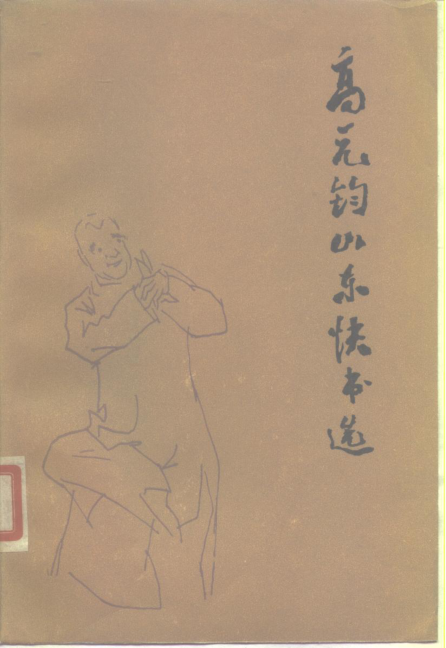 高元钧山东快书选